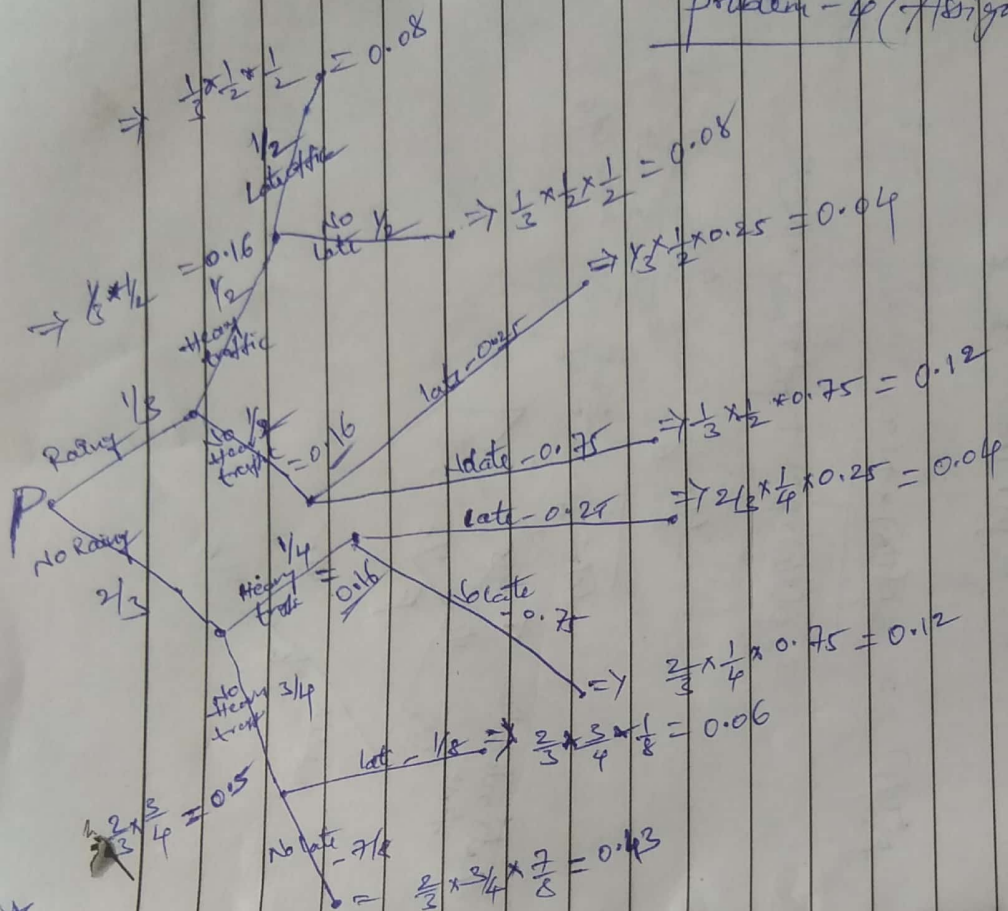 Problem - 4 (Assign
⇒ 1/3 × 1/2 × 1/2 = 0.08
1/2
Late office
No late 1/2 ⇒ 1/3 × 1/2 × 1/2 = 0.08
⇒ 1/3 × 1/2 = 0.16
1/2
Heavy traffic
late - 0.25 ⇒ 1/3 × 1/2 × 0.25 = 0.04
1/3
Rainy
No Heavy traffic 1/2 = 0.16
No late - 0.75 ⇒ 1/3 × 1/2 × 0.75 = 0.12
P
late - 0.25 ⇒ 2/3 × 1/4 × 0.25 = 0.04
No Rainy
2/3
Heavy traffic 1/4 = 0.16
No late - 0.75
⇒ 2/3 × 1/4 × 0.75 = 0.12
No Heavy traffic 3/4
late - 1/8 ⇒ 2/3 × 3/4 × 1/8 = 0.06
2/3 × 3/4 = 0.5
No late - 7/8
= 2/3 × 3/4 × 7/8 = 0.43